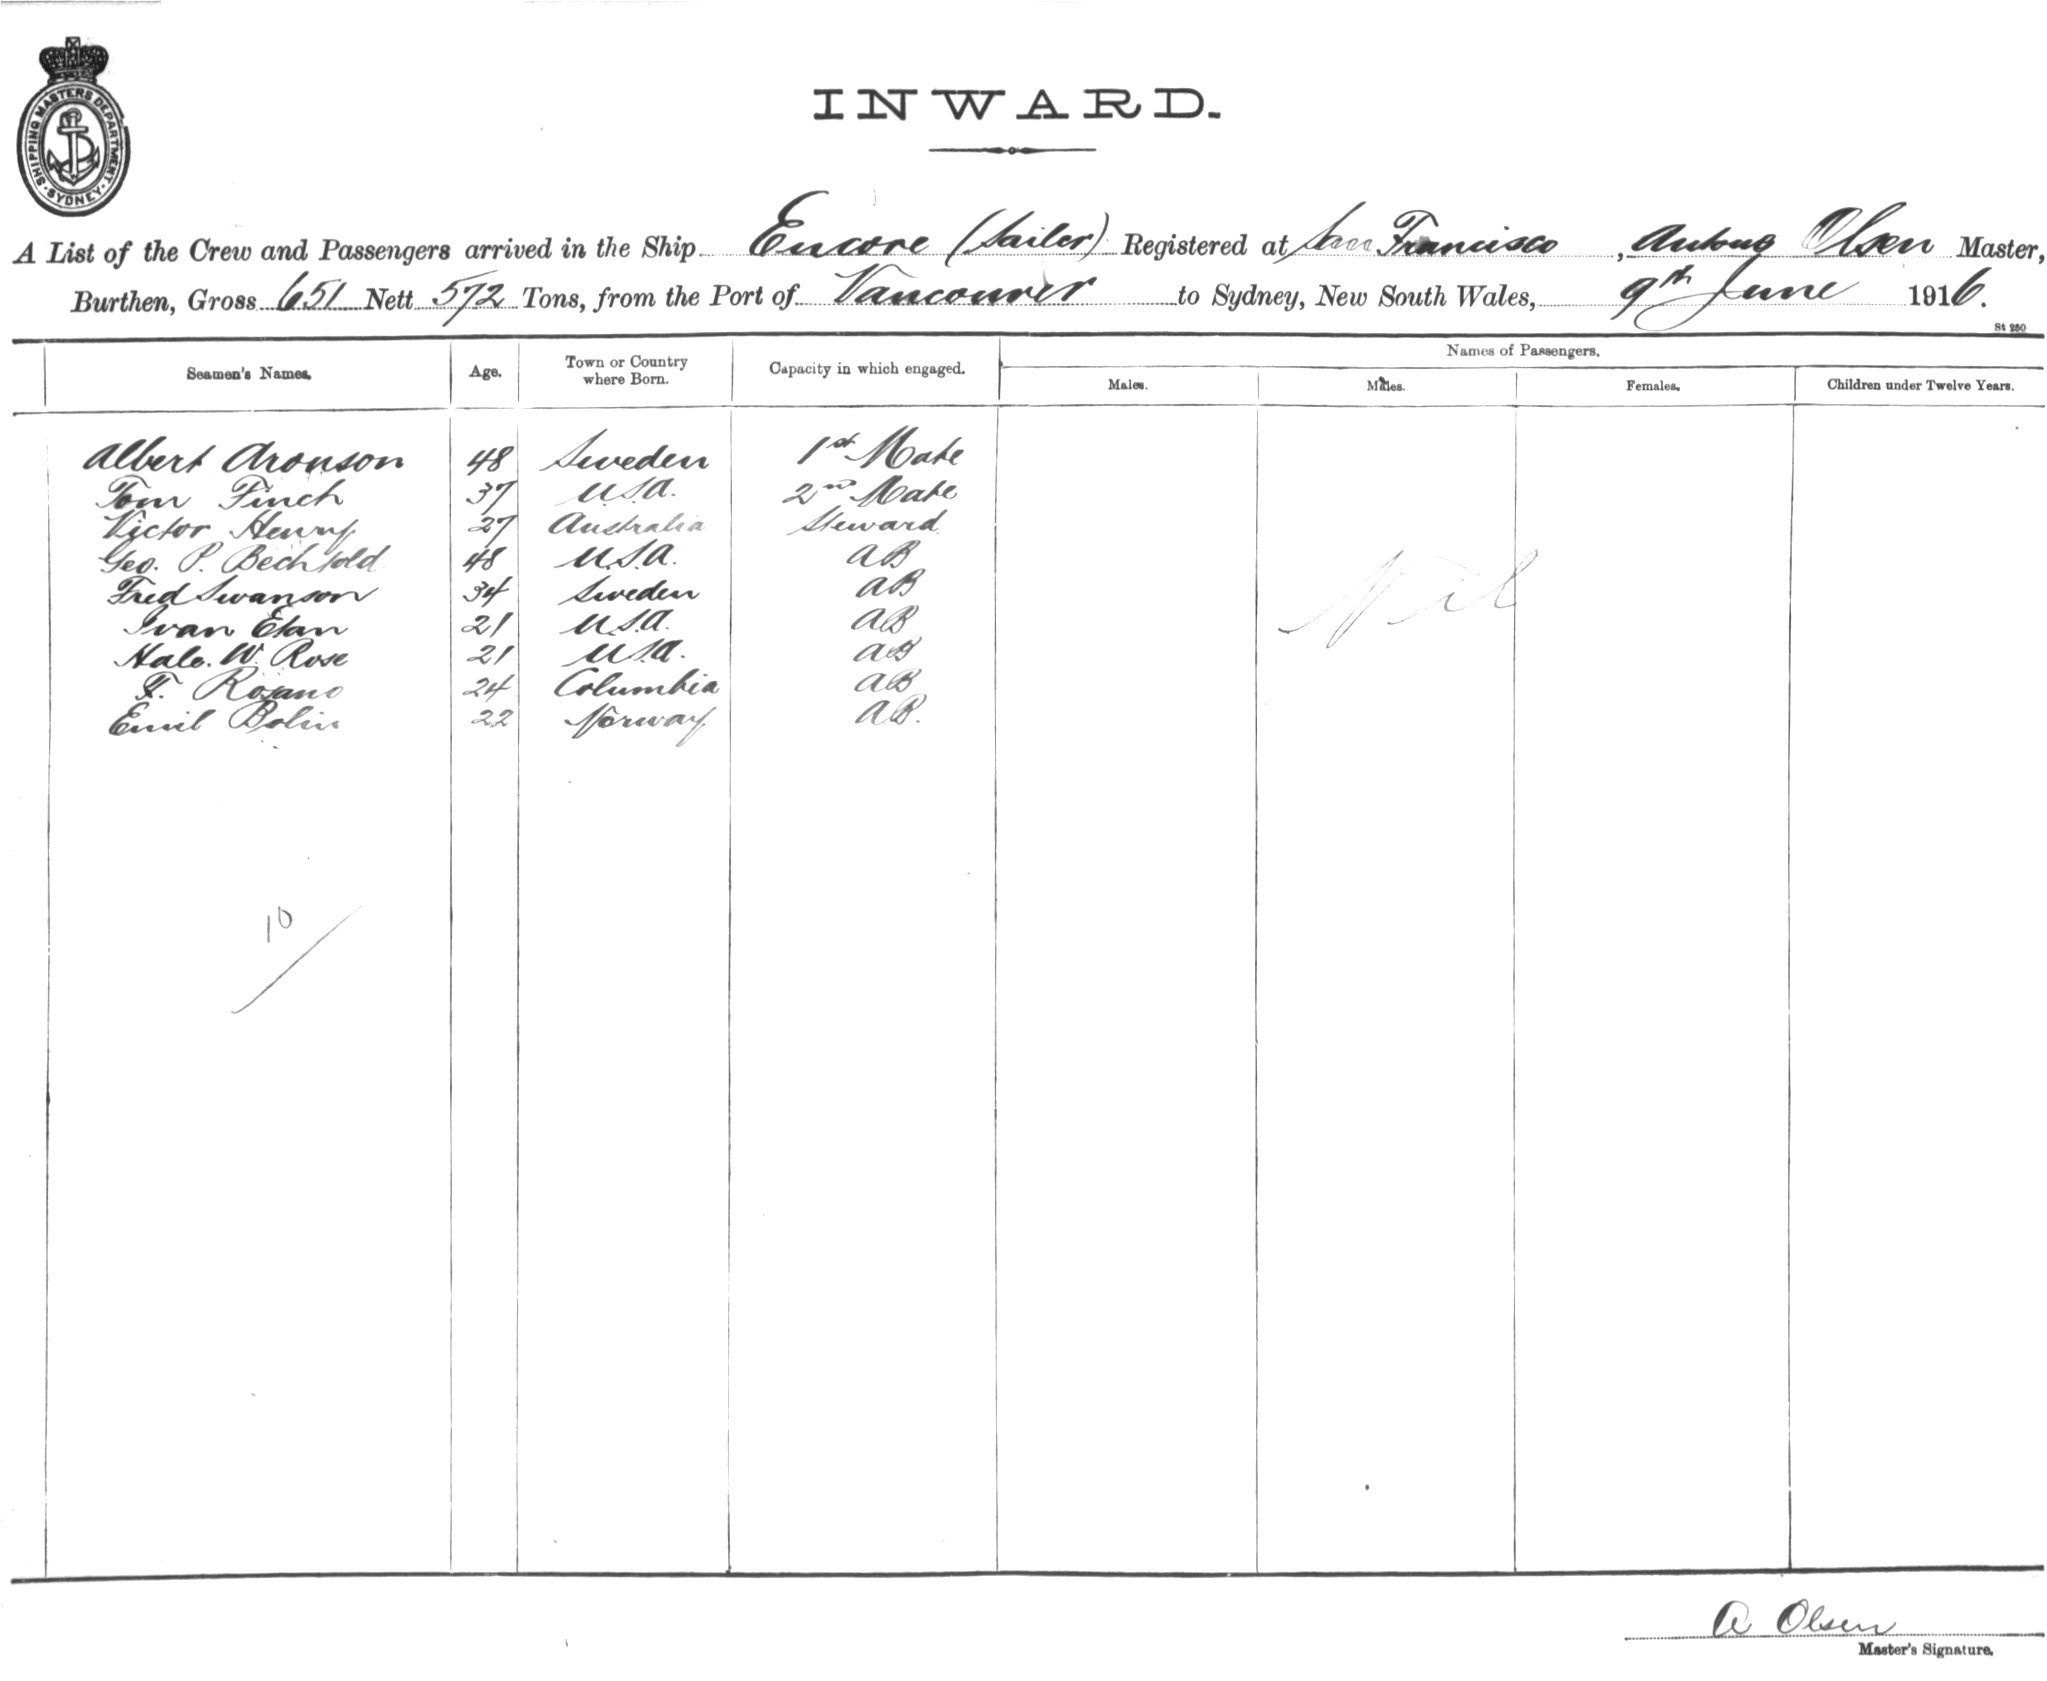 SHIPPING MASTERS DEPARTMENT. SYDNEY.
INWARD.
A List of the Crew and Passengers arrived in the Ship Encore (Sailer) Registered at San Francisco, Antony Olsen Master,
Burthen, Gross 651 Nett 572 Tons, from the Port of Vancouver to Sydney, New South Wales, 9th June 1916.
St 250
Seamen's Names. Age. Town or Country where Born. Capacity in which engaged. Names of Passengers.
Males. Males. Females. Children under Twelve Years.
Albert Aronson 48 Sweden 1st Mate
Tom Finch 37 U.S.A. 2nd Mate
Victor Henry 27 Australia Steward
Geo. P. Bechtold 48 U.S.A. AB
Fred Swanson 34 Sweden AB
Ivan Elan 21 U.S.A. AB
Hale. W. Rose 21 U.S.A. AB
F. Rozano 24 Columbia AB
Emil Bolin 22 Norway AB.
Nil
10
A Olsen
Master's Signature.